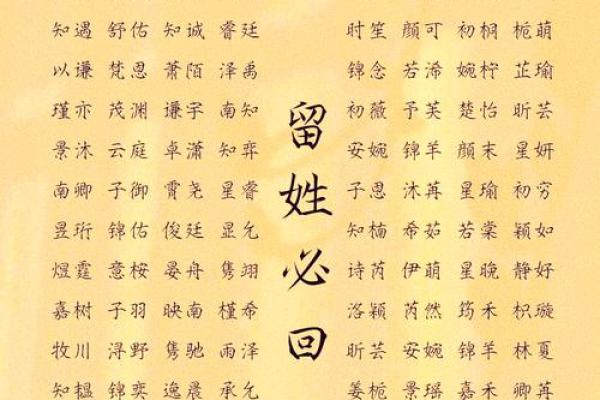 知遇 舒佑 知诚 睿廷
以谦 梵恩 萧陌 泽禹
瑾亦 茂渊 谦宇 南知
景沐 云庭 卓潇 知弈
南卿 子御 霄尧 星睿
昱珩 锦佑 俊廷 显允
煜霆 意桉 晏舟 隽翊
嘉树 子羽 映南 槿希
牧川 浔野 隽驰 雨泽
知韫 锦奕 逸晨 承允
留姓必回
时笙 颜可 初桐 栀萌
锦念 若浠 婉柠 芷瑜
初薇 予芙 楚怡 昕芸
安婉 锦羊 颜末 星妍
子思 沐苒 星瑜 初穷
知楠 希茹 若棠 颖如
诗芮 伊萌 星晚 静好
洛颖 芮然 筠禾 枳璇
昕芸 安婉 锦羊 林夏
姜栀 景瑶 嘉禾 卿苒